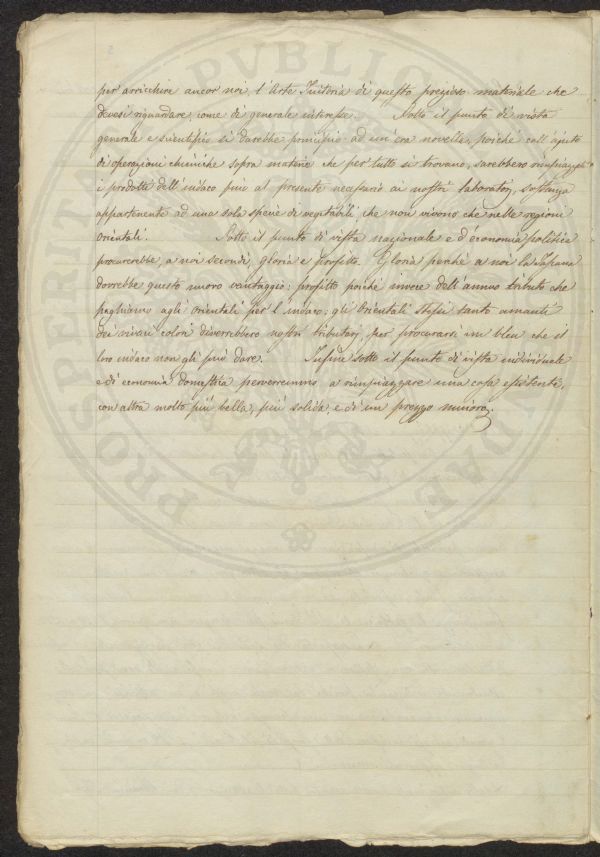 per arricchire ancor noi, l'Arte Tintoria di questo prezioso materiale che
devesi riguardare, come di generale interesse. Sotto il punto di vista
generale e scientifico si darebbe principio ad un'era novella, poichè coll'ajuto
di operazioni chimiche sopra materie che per tutto si trovano, sarebbero rimpiazzati
i prodotti dell'indaco fino al presente necessario ai nostri laboratorj, sostanza
appartenente ad una sola specie di vegetabili, che non vivono che nelle regioni
Orientali. Sotto il punto di vista nazionale e d'economia politica
procurerebbe, a noi secondi, gloria e profitto. Gloria perchè a noi la Toscana
dovrebbe questo nuovo vantaggio: profitto poichè invece dell'annuo tributo che
paghiamo agli Orientali per l'indaco, gli Orientali stessi tanto amanti
dei vivaci colori diverrebbero nostri tributarj, per procurarsi un bleu che il
loro indaco non gli può dare. Infine sotto il punto di vista individuale
e di economia domestica perverremmo, a rimpiazzare una cosa esistente,
con altra molto più bella, più solida, e di un prezzo minore.
PVBLIC
PROSPERITA
DAE